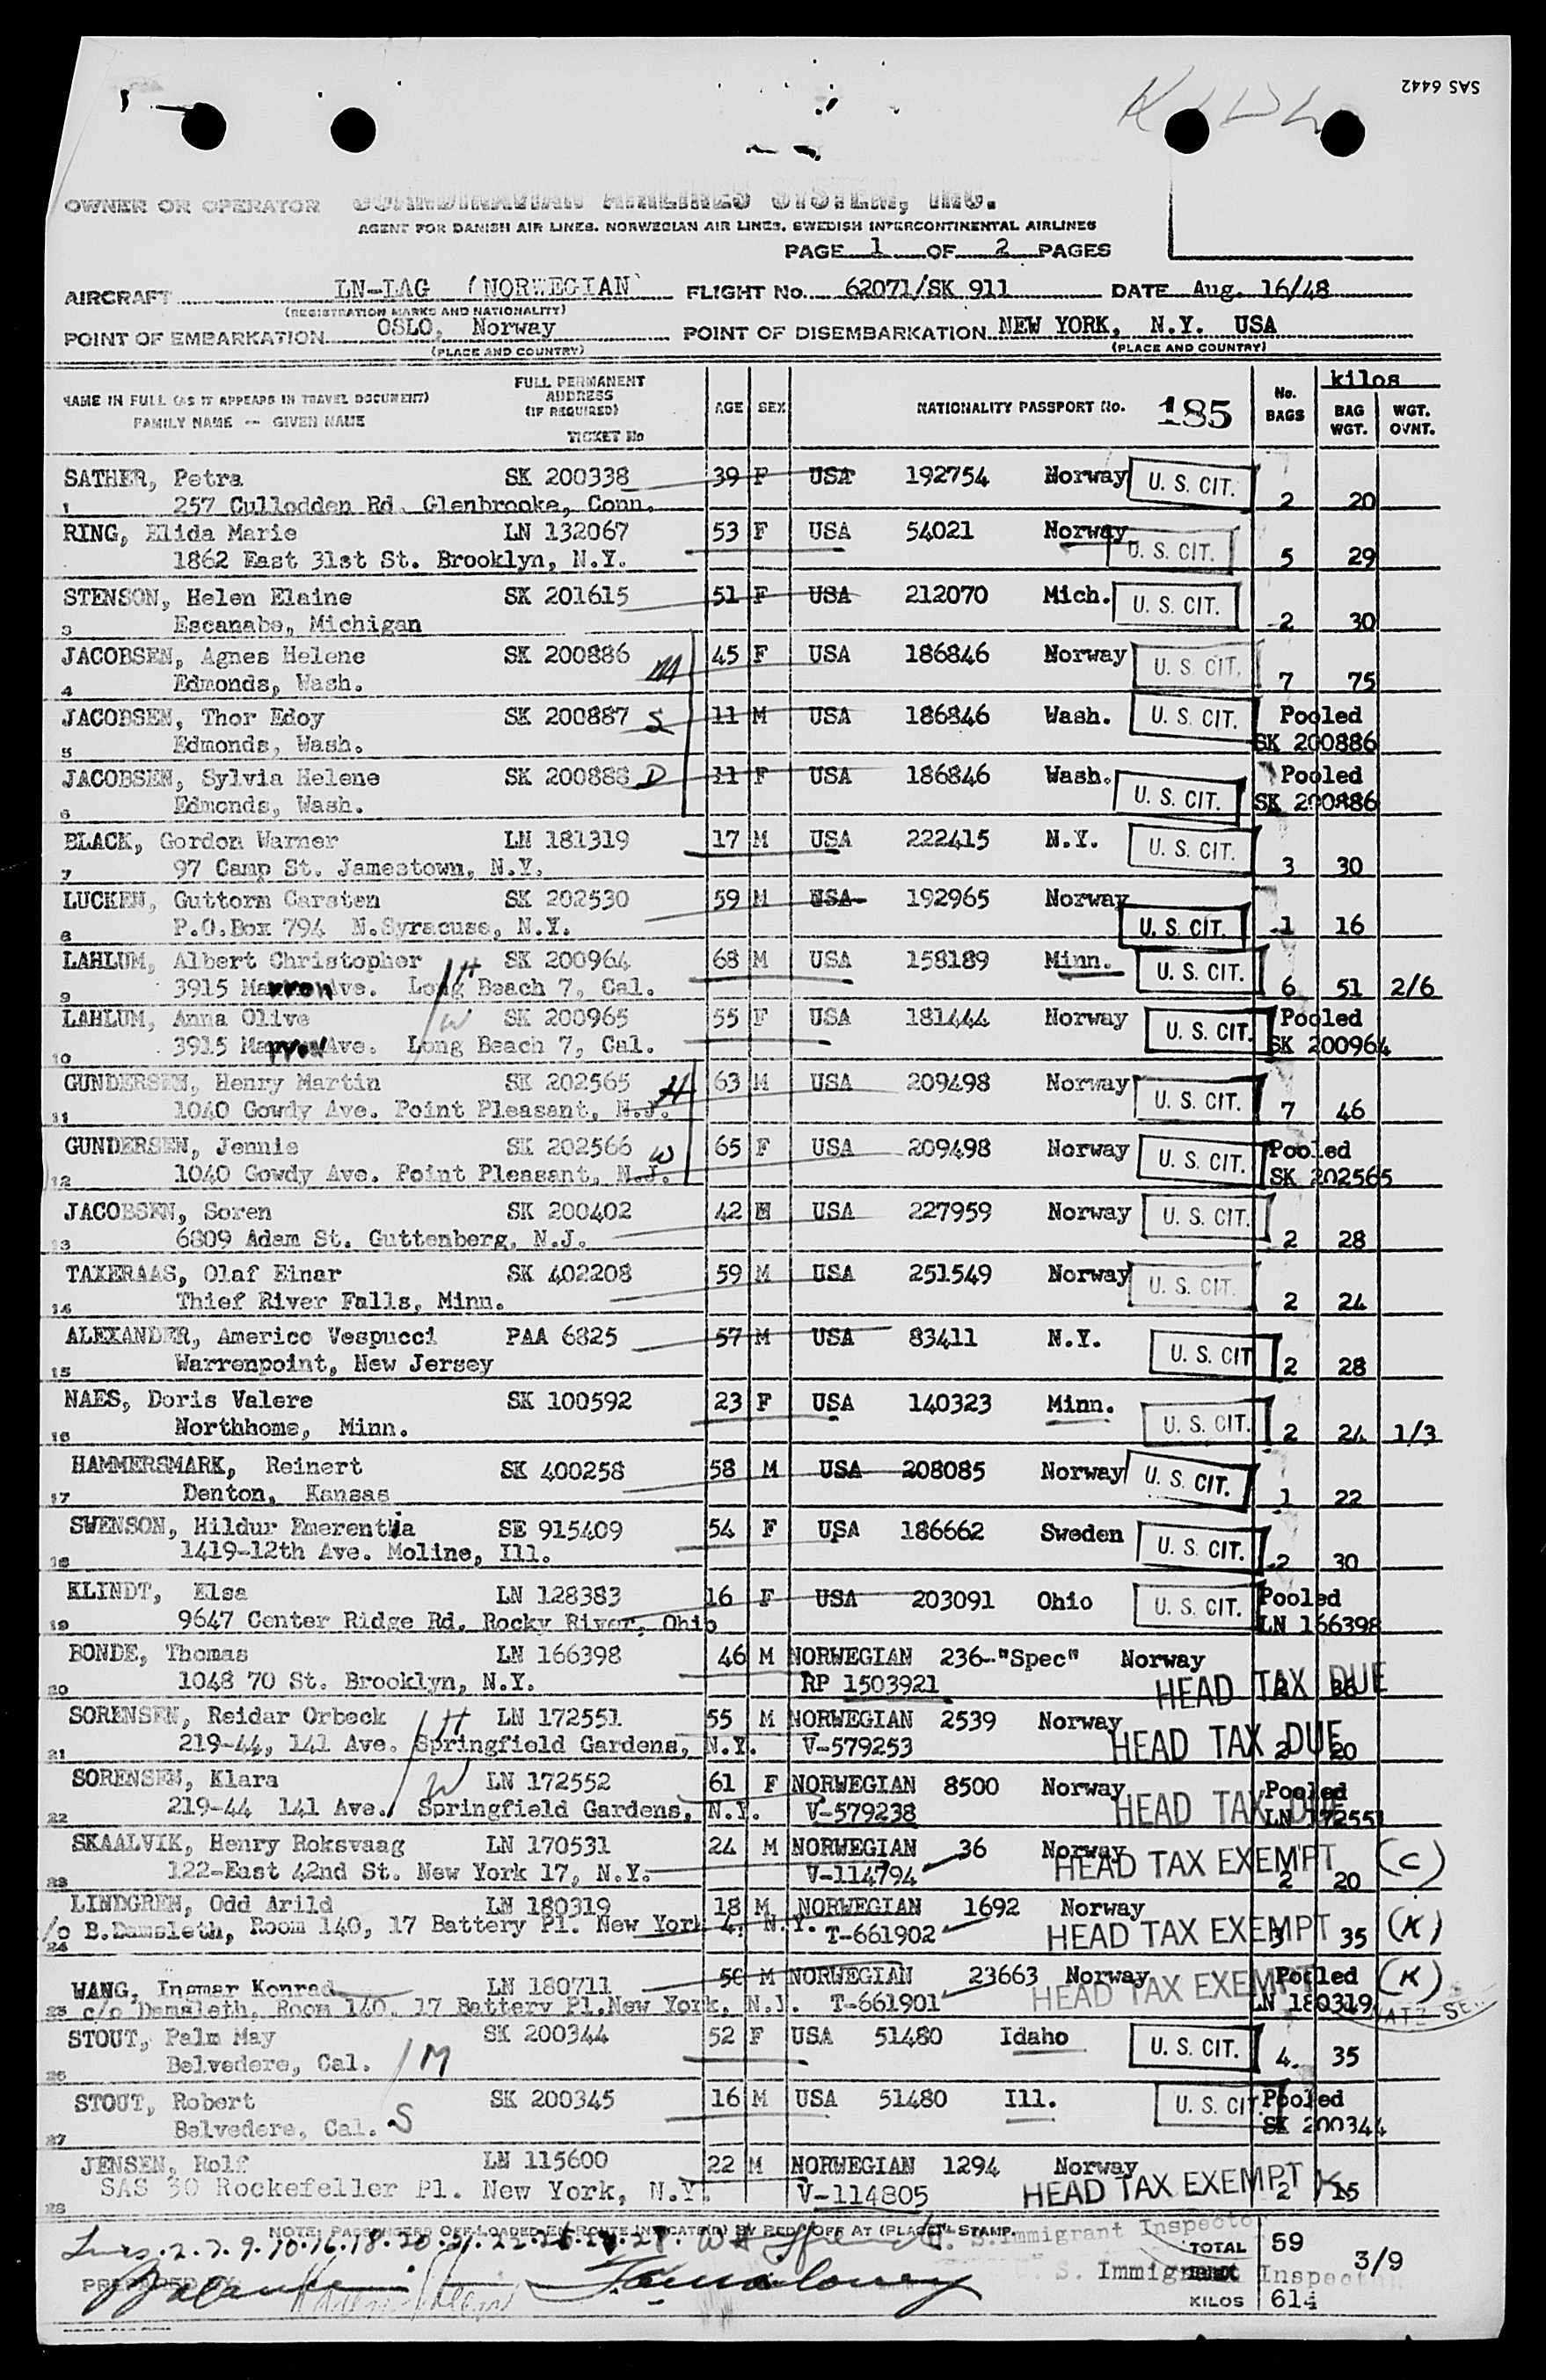 SAS 6442
OWNER OR OPERATOR SCANDINAVIAN AIRLINES SYSTEM, INC.
AGENT FOR DANISH AIR LINES. NORWEGIAN AIR LINES. SWEDISH INTERCONTINENTAL AIRLINES
PAGE 1 OF 2 PAGES
AIRCRAFT LN-IAG (NORWEGIAN) FLIGHT No. 62071/SK 911 DATE Aug. 16/48
(REGISTRATION MARKS AND NATIONALITY)
POINT OF EMBARKATION OSLO, Norway POINT OF DISEMBARKATION NEW YORK, N.Y. USA
(PLACE AND COUNTRY) (PLACE AND COUNTRY)
NAME IN FULL (AS IT APPEARS IN TRAVEL DOCUMENT) FULL PERMANENT ADDRESS (IF REQUIRED) AGE SEX NATIONALITY PASSPORT No. 185 No. BAGS kilos BAG WGT. WGT. OVNT.
FAMILY NAME -- GIVEN NAME TICKET No
SATHER, Petra SK 200338 39 F USA 192754 Norway U. S. CIT.
1 257 Cullodden Rd. Glenbrooke, Conn. 2 20
RING, Elida Marie LN 132067 53 F USA 54021 Norway U. S. CIT.
1862 East 31st St. Brooklyn, N.Y. 5 29
STENSON, Helen Elaine SK 201615 51 F USA 212070 Mich. U. S. CIT.
3 Escanabe, Michigan 2 30
JACOBSEN, Agnes Helene SK 200886 M 45 F USA 186846 Norway U. S. CIT.
4 Edmonds, Wash. 7 75
JACOBSEN, Thor Edoy SK 200887 S 11 M USA 186846 Wash. U. S. CIT. Pooled
5 Edmonds, Wash. SK 200886
JACOBSEN, Sylvia Helene SK 200888 D 11 F USA 186846 Wash. U. S. CIT. Pooled
6 Edmonds, Wash. SK 200886
BLACK, Gordon Warner LN 181319 17 M USA 222415 N.Y. U. S. CIT.
7 97 Camp St. Jamestown, N.Y. 3 30
LUCKEN, Guttorm Carsten SK 202530 59 M USA 192965 Norway U. S. CIT.
8 P.O.Box 794 N.Syracuse, N.Y. 1 16
LAHLUM, Albert Christopher H SK 200964 68 M USA 158189 Minn. U. S. CIT.
9 3915 Marron Ave. Long Beach 7, Cal. 6 51 2/6
LAHLUM, Anna Olive W SK 200965 55 F USA 181444 Norway U. S. CIT. Pooled
10 3915 Marron Ave. Long Beach 7, Cal. SK 200964
GUNDERSEN, Henry Martin SK 202565 H 63 M USA 209498 Norway U. S. CIT.
11 1040 Gowdy Ave. Point Pleasant, N.J. 7 46
GUNDERSEN, Jennie SK 202566 W 65 F USA 209498 Norway U. S. CIT. Pooled
12 1040 Gowdy Ave. Point Pleasant, N.J. SK 202565
JACOBSEN, Soren SK 200402 42 M USA 227959 Norway U. S. CIT.
13 6809 Adam St. Guttenberg, N.J. 2 28
TAXERAAS, Olaf Einar SK 402208 59 M USA 251549 Norway U. S. CIT.
14 Thief River Falls, Minn. 2 24
ALEXANDER, Americo Vespucci PAA 6825 57 M USA 83411 N.Y. U. S. CIT
15 Warrenpoint, New Jersey 2 28
NAES, Doris Valere SK 100592 23 F USA 140323 Minn. U. S. CIT.
16 Northhome, Minn. 2 24 1/3
HAMMERSMARK, Reinert SK 400258 58 M USA 208085 Norway U. S. CIT.
17 Denton, Kansas 1 22
SWENSON, Hildur Emerentia SE 915409 54 F USA 186662 Sweden U. S. CIT.
18 1419-12th Ave. Moline, Ill. 2 30
KLINDT, Elsa LN 128383 16 F USA 203091 Ohio U. S. CIT. Pooled
19 9647 Center Ridge Rd. Rocky River, Ohio LN 166398
BONDE, Thomas LN 166398 46 M NORWEGIAN 236-"Spec" Norway
20 1048 70 St. Brooklyn, N.Y. RP 1503921 HEAD TAX DUE
SORENSEN, Reidar Orbeck H LN 172551 55 M NORWEGIAN 2539 Norway
21 219-44, 141 Ave. Springfield Gardens, N.Y. V-579253 HEAD TAX DUE 2 20
SORENSEN, Klara W LN 172552 61 F NORWEGIAN 8500 Norway Pooled
22 219-44 141 Ave. Springfield Gardens, N.Y. V-579238 HEAD TAX DUE LN 172551
SKAALVIK, Henry Roksvaag LN 170531 24 M NORWEGIAN 36 Norway
23 122-East 42nd St. New York 17, N.Y. V-114794 HEAD TAX EXEMPT 2 20 (C)
LINDGREN, Odd Arild LN 180319 18 M NORWEGIAN 1692 Norway
24 c/o B.Damsleth, Room 140, 17 Battery Pl. New York 4, N.Y. T-661902 HEAD TAX EXEMPT 3 35 (K)
WANG, Ingmar Konrad LN 180711 50 M NORWEGIAN 23663 Norway Pooled (K)
25 c/o Damsleth, Room 140, 17 Battery Pl.New York, N.Y. T-661901 HEAD TAX EXEMPT LN 180319
STOUT, Palm May SK 200344 52 F USA 51480 Idaho U. S. CIT.
26 Belvedere, Cal. M 4 35
STOUT, Robert SK 200345 16 M USA 51480 Ill. U. S. CIT. Pooled
27 Belvedere, Cal. S SK 200344
JENSEN, Rolf LN 115600 22 M NORWEGIAN 1294 Norway
28 SAS 30 Rockefeller Pl. New York, N.Y. V-114805 HEAD TAX EXEMPT 2 15
NOTE: PASSENGERS OFF-LOADED EN ROUTE INDICATE(D) BY RED "OFF AT (PLACE)" STAMP.
U. S. Immigrant Inspector
TOTAL 59 3/9
PREPARED BY
U. S. Immigrant Inspector
KILOS 614